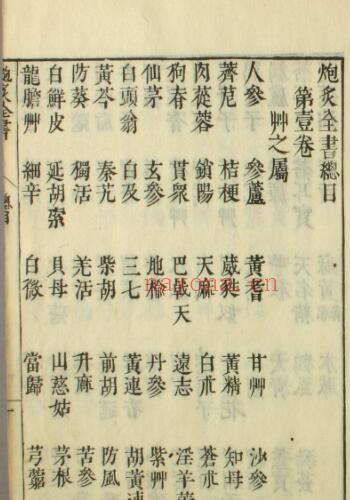 炮炙全書總目
第壹卷
艸之屬
人參 參蘆 黃耆 甘艸 沙參
薺苨 桔梗 葳蕤 黃精 知母
肉蓯蓉 鎖陽 天麻 白朮 蒼朮
狗脊 貫衆 巴戟天 遠志 淫羊藿
仙茅 玄參 地楡 丹參 紫艸
白頭翁 白及 三七 黃連 胡黃連
黃芩 秦艽 柴胡 前胡 防風
防葵 獨活 羌活 升麻 苦參
白鮮皮 延胡索 貝母 山慈姑 茅根
龍膽艸 細辛 白薇 當歸 芎藭
炮炙全書 總目
nayona.cn